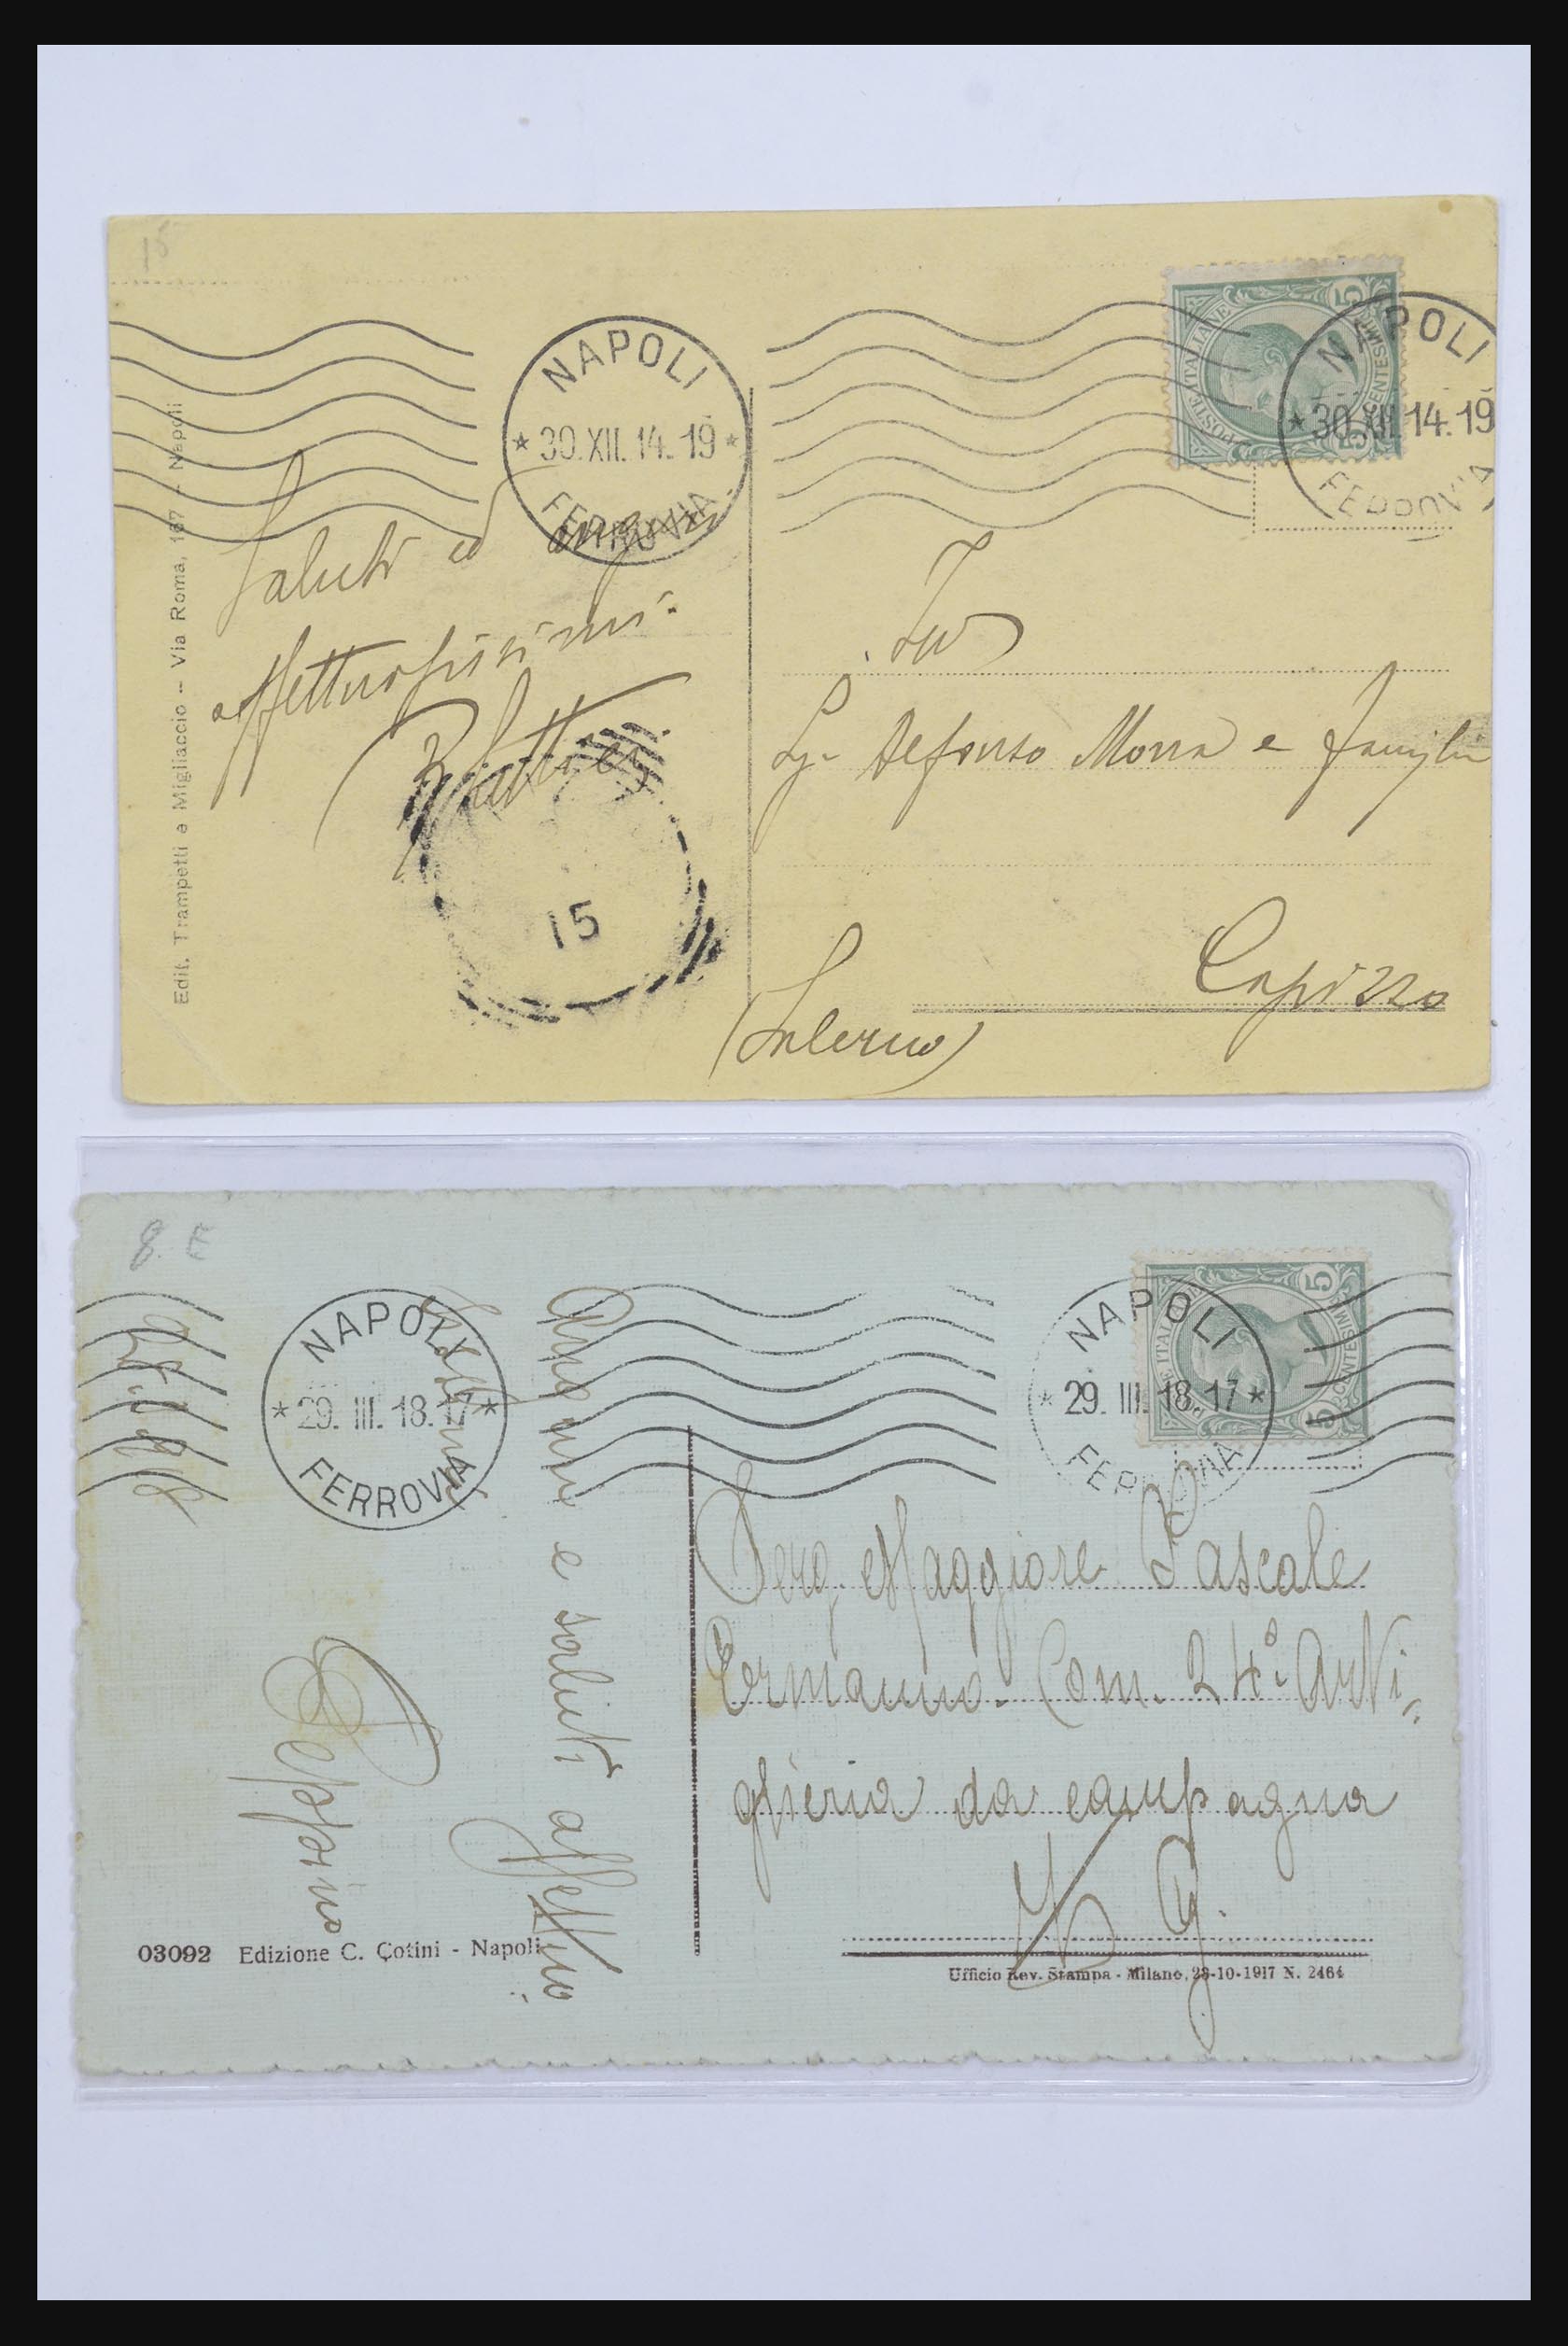 15
NAPOLI
* 30.XII.14.19 *
FERROVIA
NAPOLI
* 30.XII.14.19
FERROVIA
POSTE ITALIANE
5 CENTESIMI 5
Saluti ed auguri
affettuosissimi.
15
Sigr Alfonso Morra e famiglia
Capizzo
(Salerno)
Edit. Trampetti e Migliaccio – Via Roma, 167 - Napoli
8. E
NAPOLI
* 29. III. 18. 17 *
FERROVIA
NAPOLI
* 29. III. 18. 17 *
FERROVIA
POSTE ITALIANE
5 CENTESIMI 5
e saluti affettuo
Peppino
Serg. Maggiore Pascale
Ermanno. Com. 24º Arti-
glieria da campagna
Z G.
03092 Edizione C. Cotini - Napoli
Ufficio Rev. Stampa - Milano, 23-10-1917 N. 2464